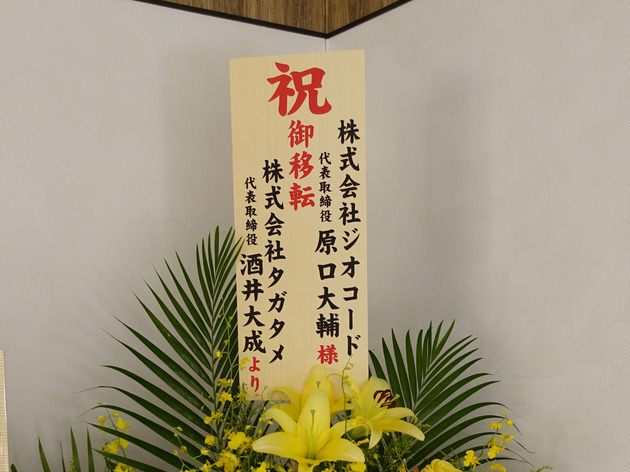 祝
御移転
株式会社ジオコード
代表取締役 原口大輔様
株式会社タガタメ
代表取締役 酒井大成より